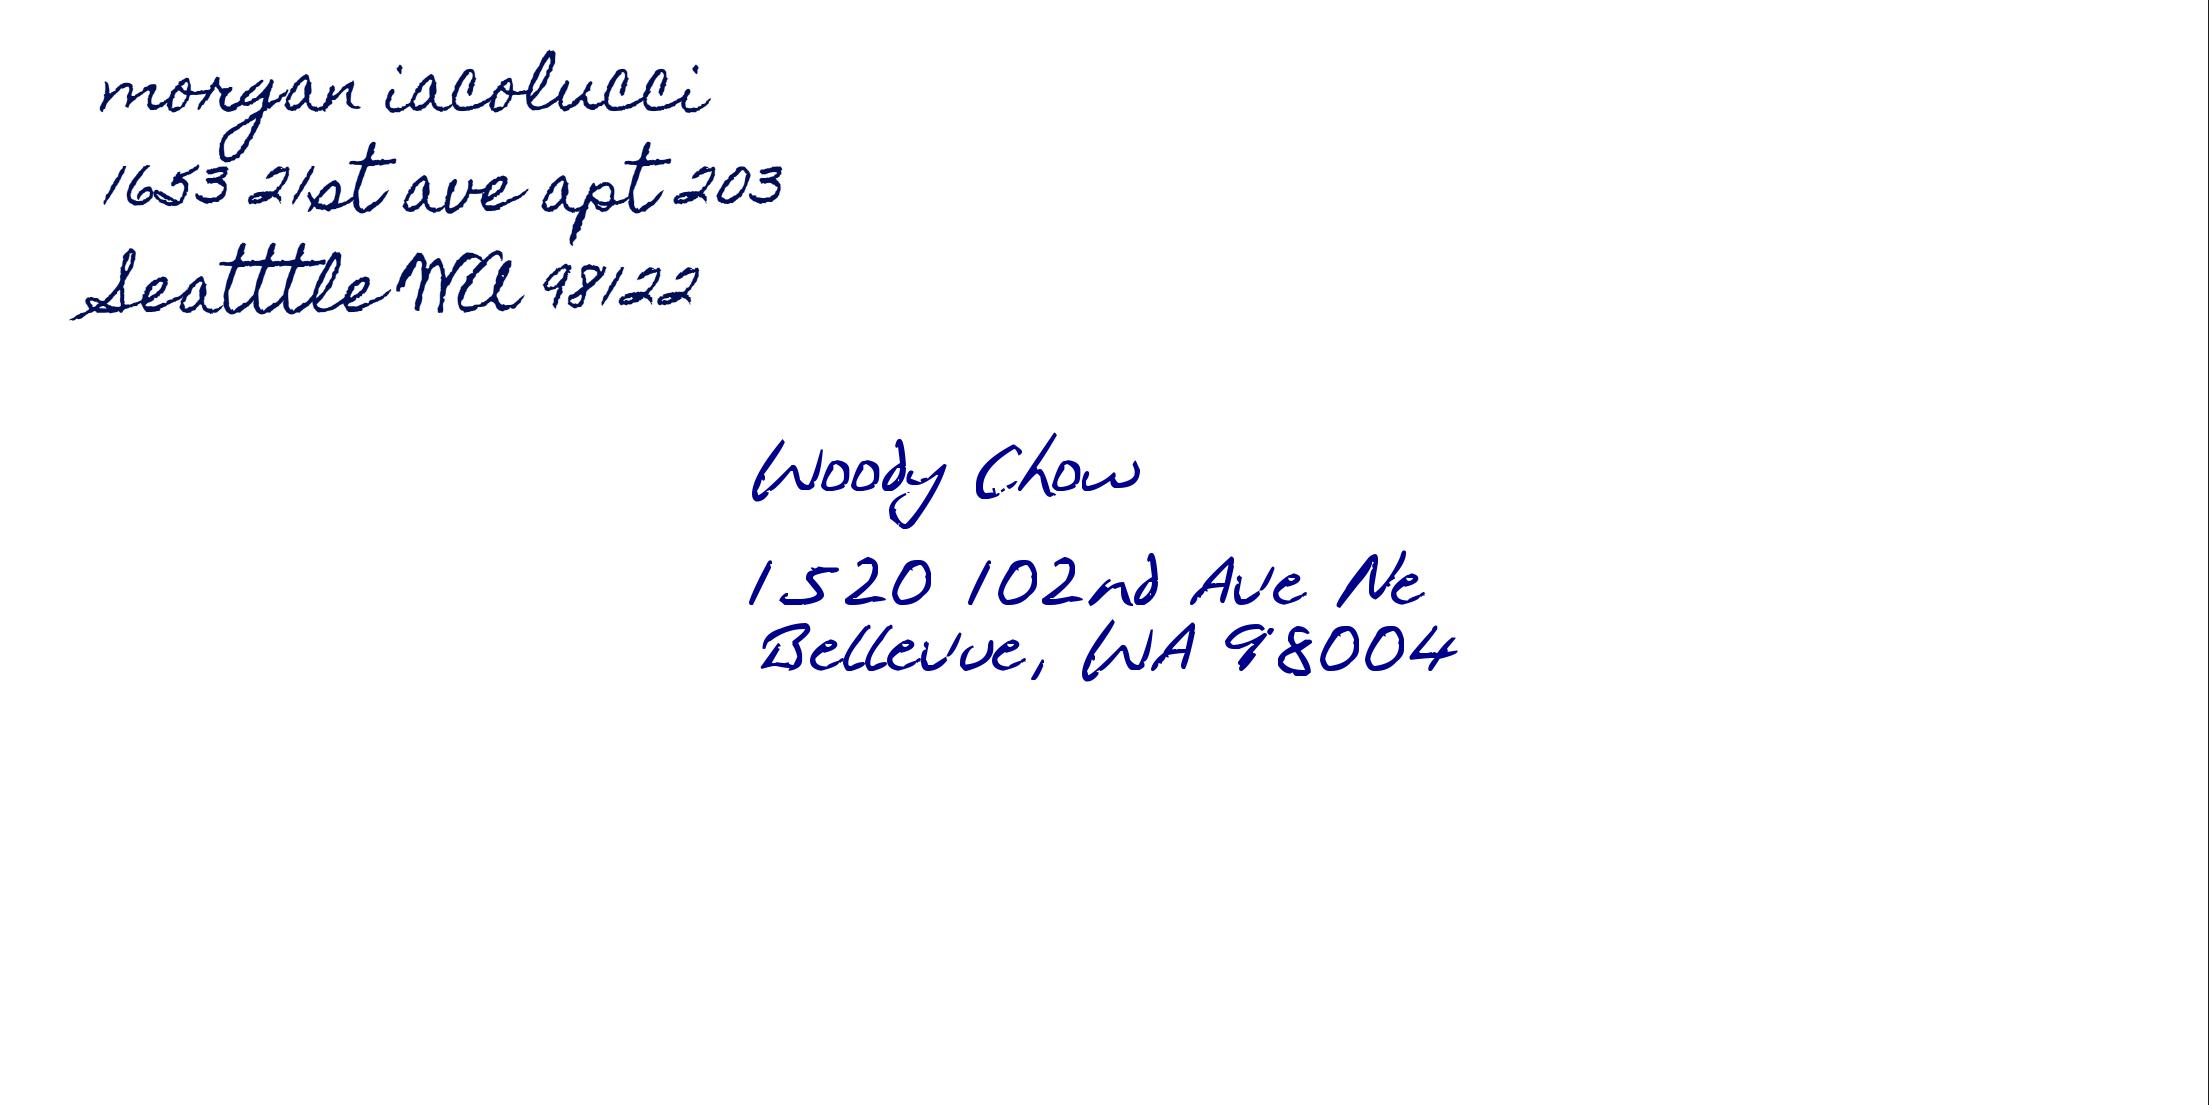 morgan iacolucci
1653 21st ave apt 203
Seatttle WA 98122
Woody Chow
1520 102nd Ave Ne
Bellevue, WA 98004